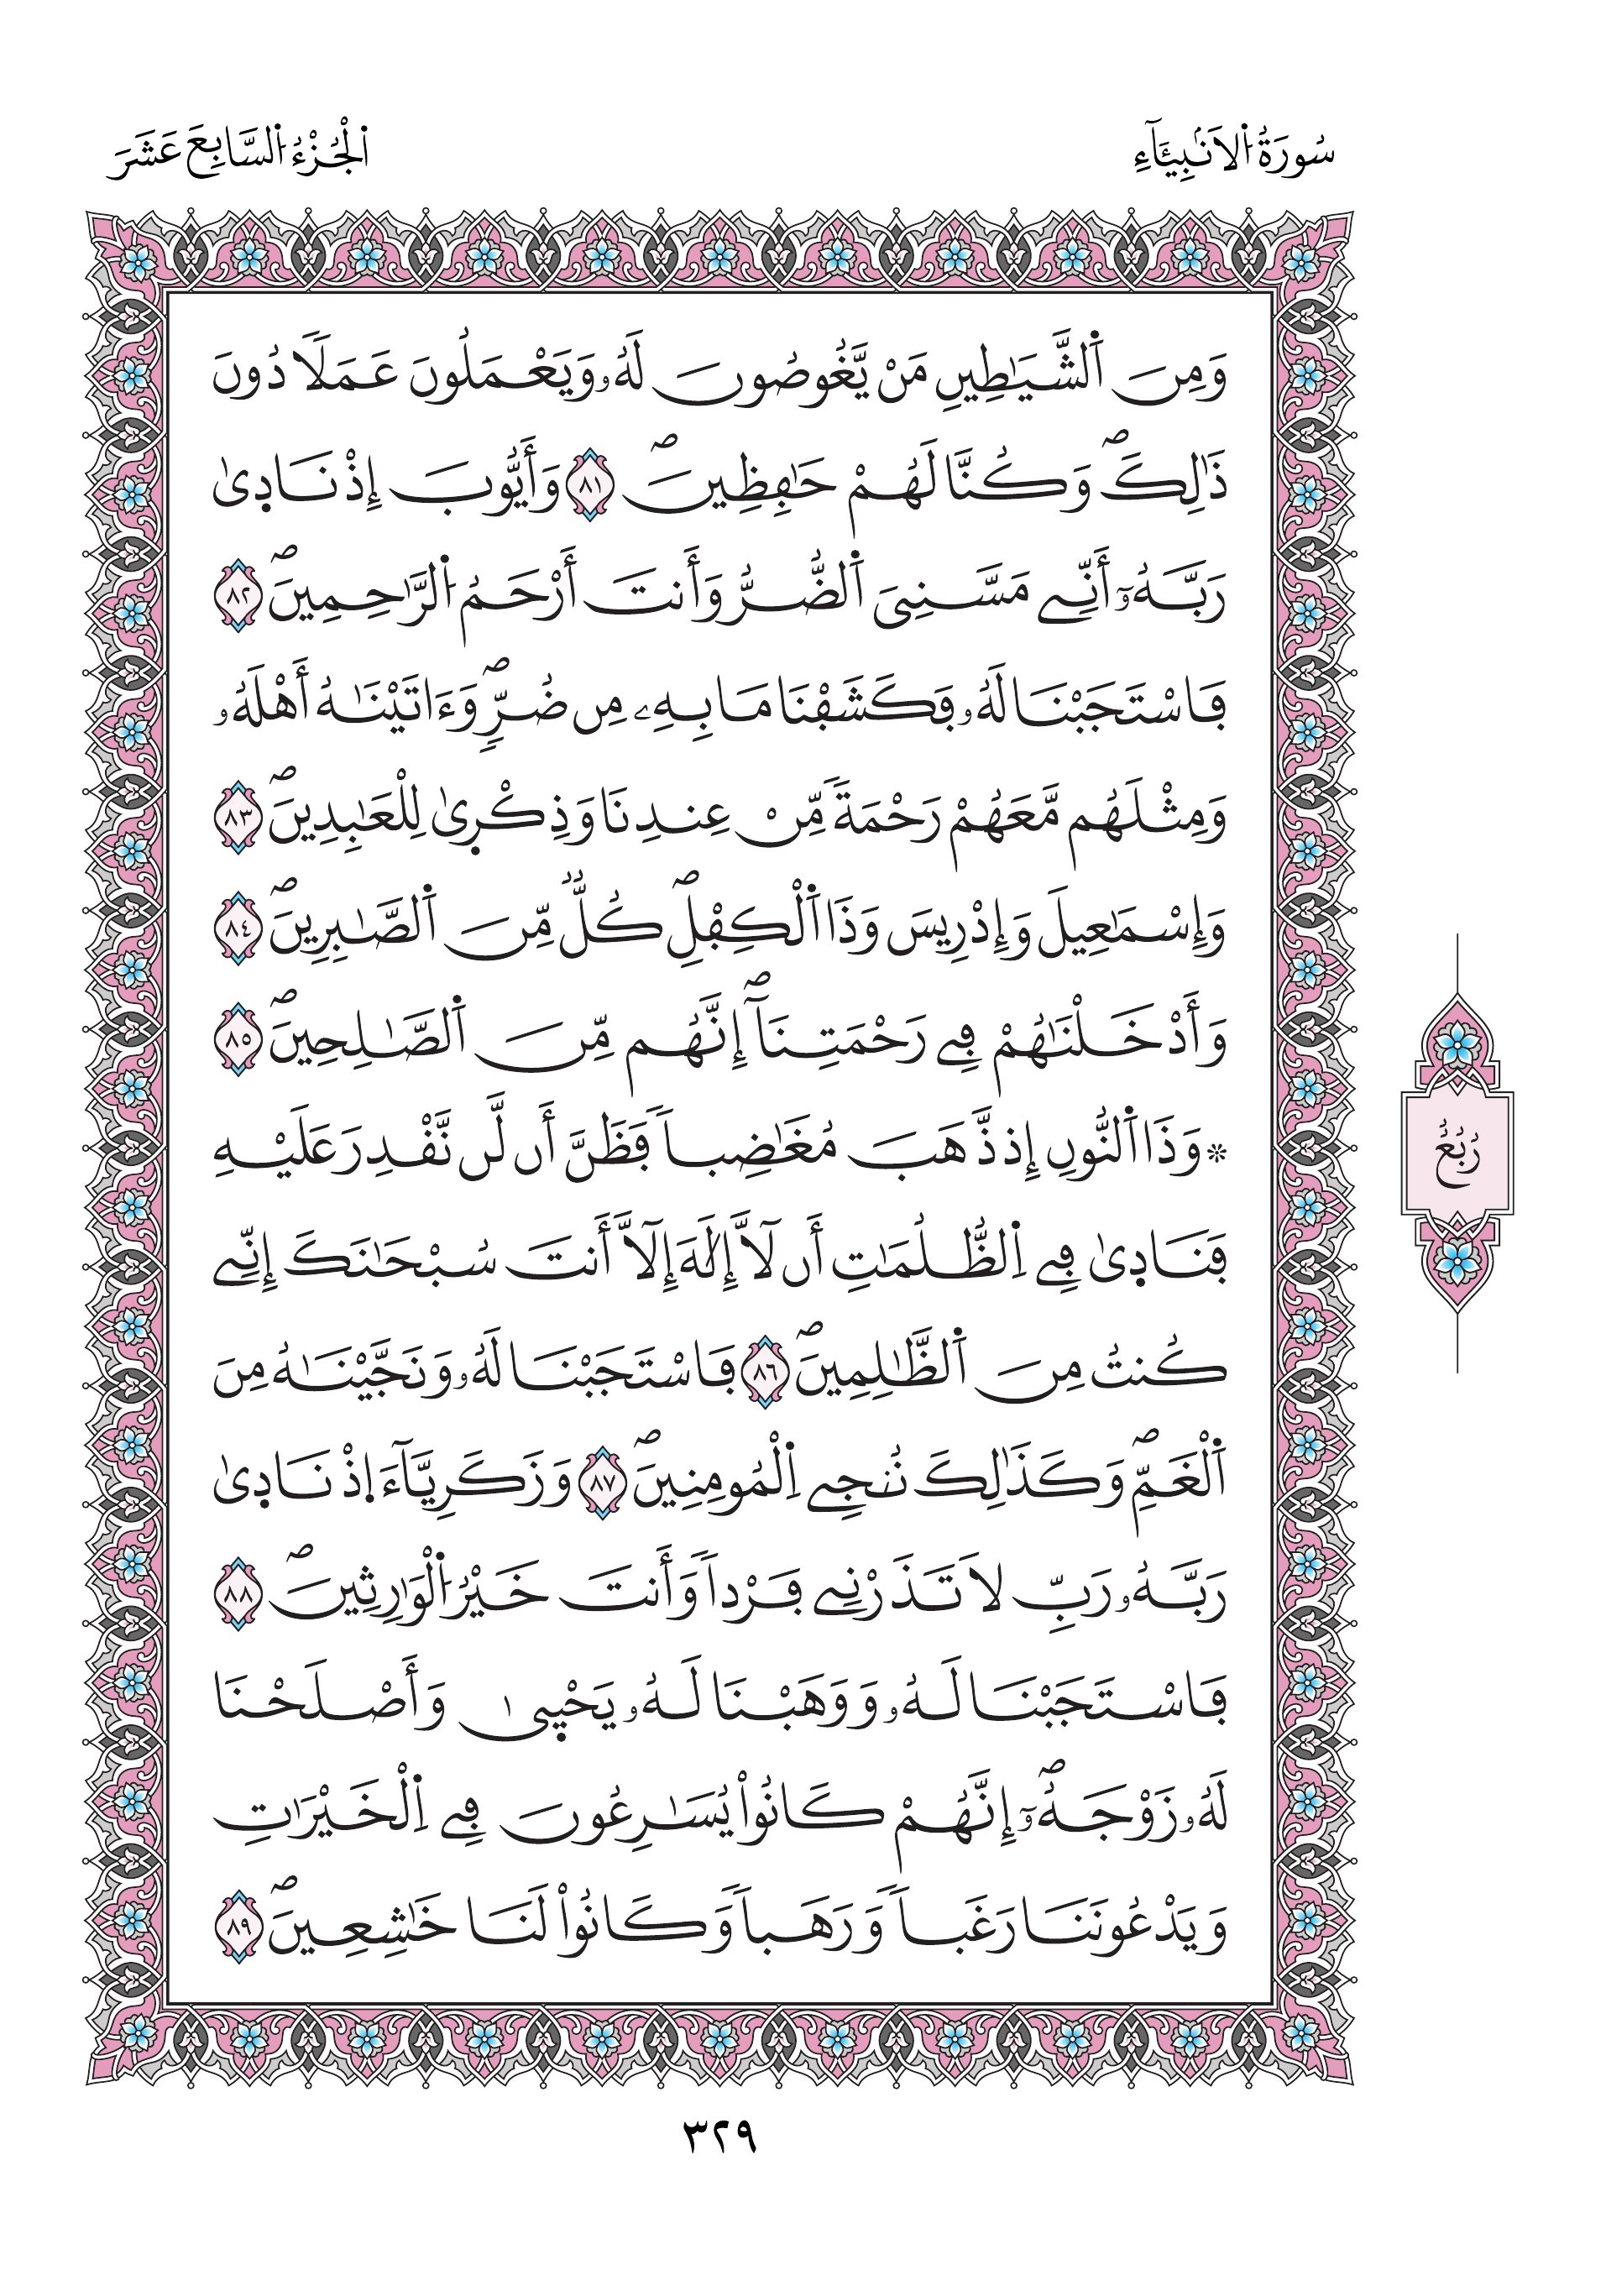 سُورَةُ اُ۬لَانۢبِيَآءِ
اَ۬لْجُزْءُ اُ۬لسَّابِعَ عَشَرَ
وَمِنَ اَ۬لشَّيَٰطِينِ مَنْ يَّغُوصُونَ لَهُۥ وَيَعْمَلُونَ عَمَلاٗ دُونَ
ذَٰلِكَۖ وَكُنَّا لَهُمْ حَٰفِظِينَۖ ۝٨١ وَأَيُّوبَ إِذْ نَادٜيٰ
رَبَّهُۥٓ أَنِّے مَسَّنِيَ اَ۬لضُّرُّ وَأَنتَ أَرْحَمُ اُ۬لرَّٰحِمِينَۖ ۝٨٢
فَاسْتَجَبْنَا لَهُۥ فَكَشَفْنَا مَا بِهِۦ مِن ضُرّٖۖ وَءَاتَيْنَٰهُ أَهْلَهُۥ
وَمِثْلَهُم مَّعَهُمْ رَحْمَةٗ مِّنْ عِندِنَا وَذِكْر۪يٰ لِلْعَٰبِدِينَۖ ۝٨٣
وَإِسْمَٰعِيلَ وَإِدْرِيسَ وَذَا اَ۬لْكِفْلِۖ كُلّٞ مِّنَ اَ۬لصَّٰبِرِينَۖ ۝٨٤
وَأَدْخَلْنَٰهُمْ فِے رَحْمَتِنَآۖ إِنَّهُم مِّنَ اَ۬لصَّٰلِحِينَۖ ۝٨٥
* وَذَا اَ۬لنُّونِ إِذ ذَّهَبَ مُغَٰضِباٗ فَظَنَّ أَن لَّن نَّقْدِرَ عَلَيْهِ
فَنَادٜيٰ فِے اِ۬لظُّلُمَٰتِ أَن لَّآ إِلَٰهَ إِلَّآ أَنتَ سُبْحَٰنَكَ إِنِّے
كُنتُ مِنَ اَ۬لظَّٰلِمِينَۖ ۝٨٦ فَاسْتَجَبْنَا لَهُۥ وَنَجَّيْنَٰهُ مِنَ
اَ۬لْغَمِّۖ وَكَذَٰلِكَ نُۨجِے اِ۬لْمُومِنِينَۖ ۝٨٧ وَزَكَرِيَّآءَ اِ۪ذْ نَادٜيٰ
رَبَّهُۥ رَبِّ لَا تَذَرْنِے فَرْداٗ وَأَنتَ خَيْرُ اُ۬لْوَٰرِثِينَۖ ۝٨٨
فَاسْتَجَبْنَا لَهُۥ وَوَهَبْنَا لَهُۥ يَحْيٜيٰ وَأَصْلَحْنَا
لَهُۥ زَوْجَهُۥٓۖ إِنَّهُمْ كَانُواْ يُسَٰرِعُونَ فِے اِ۬لْخَيْرَٰتِ
وَيَدْعُونَنَا رَغَباٗ وَرَهَباٗ وَكَانُواْ لَنَا خَٰشِعِينَۖ ۝٨٩
رُبُعُ
٣٢٩